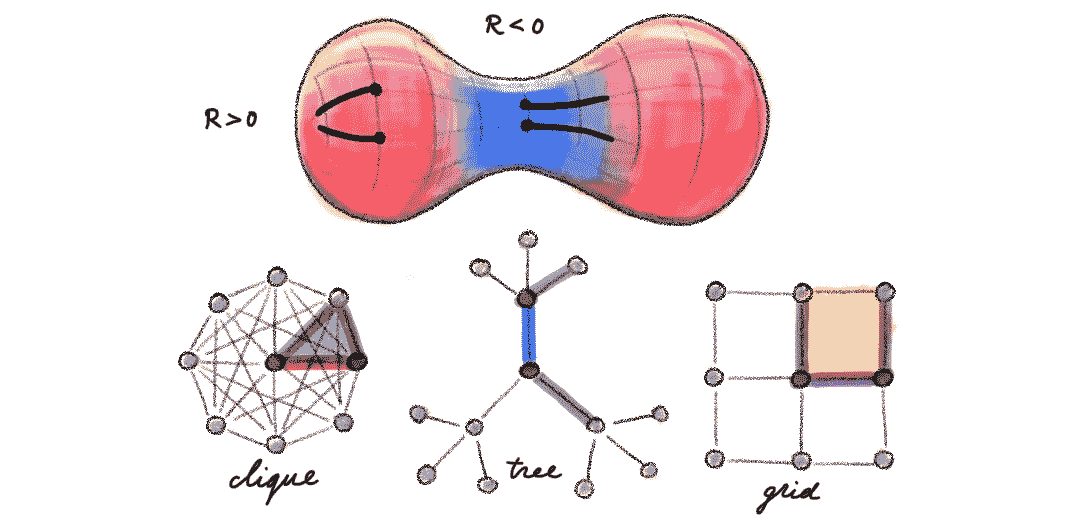 R < 0
R > 0
clique
tree
grid